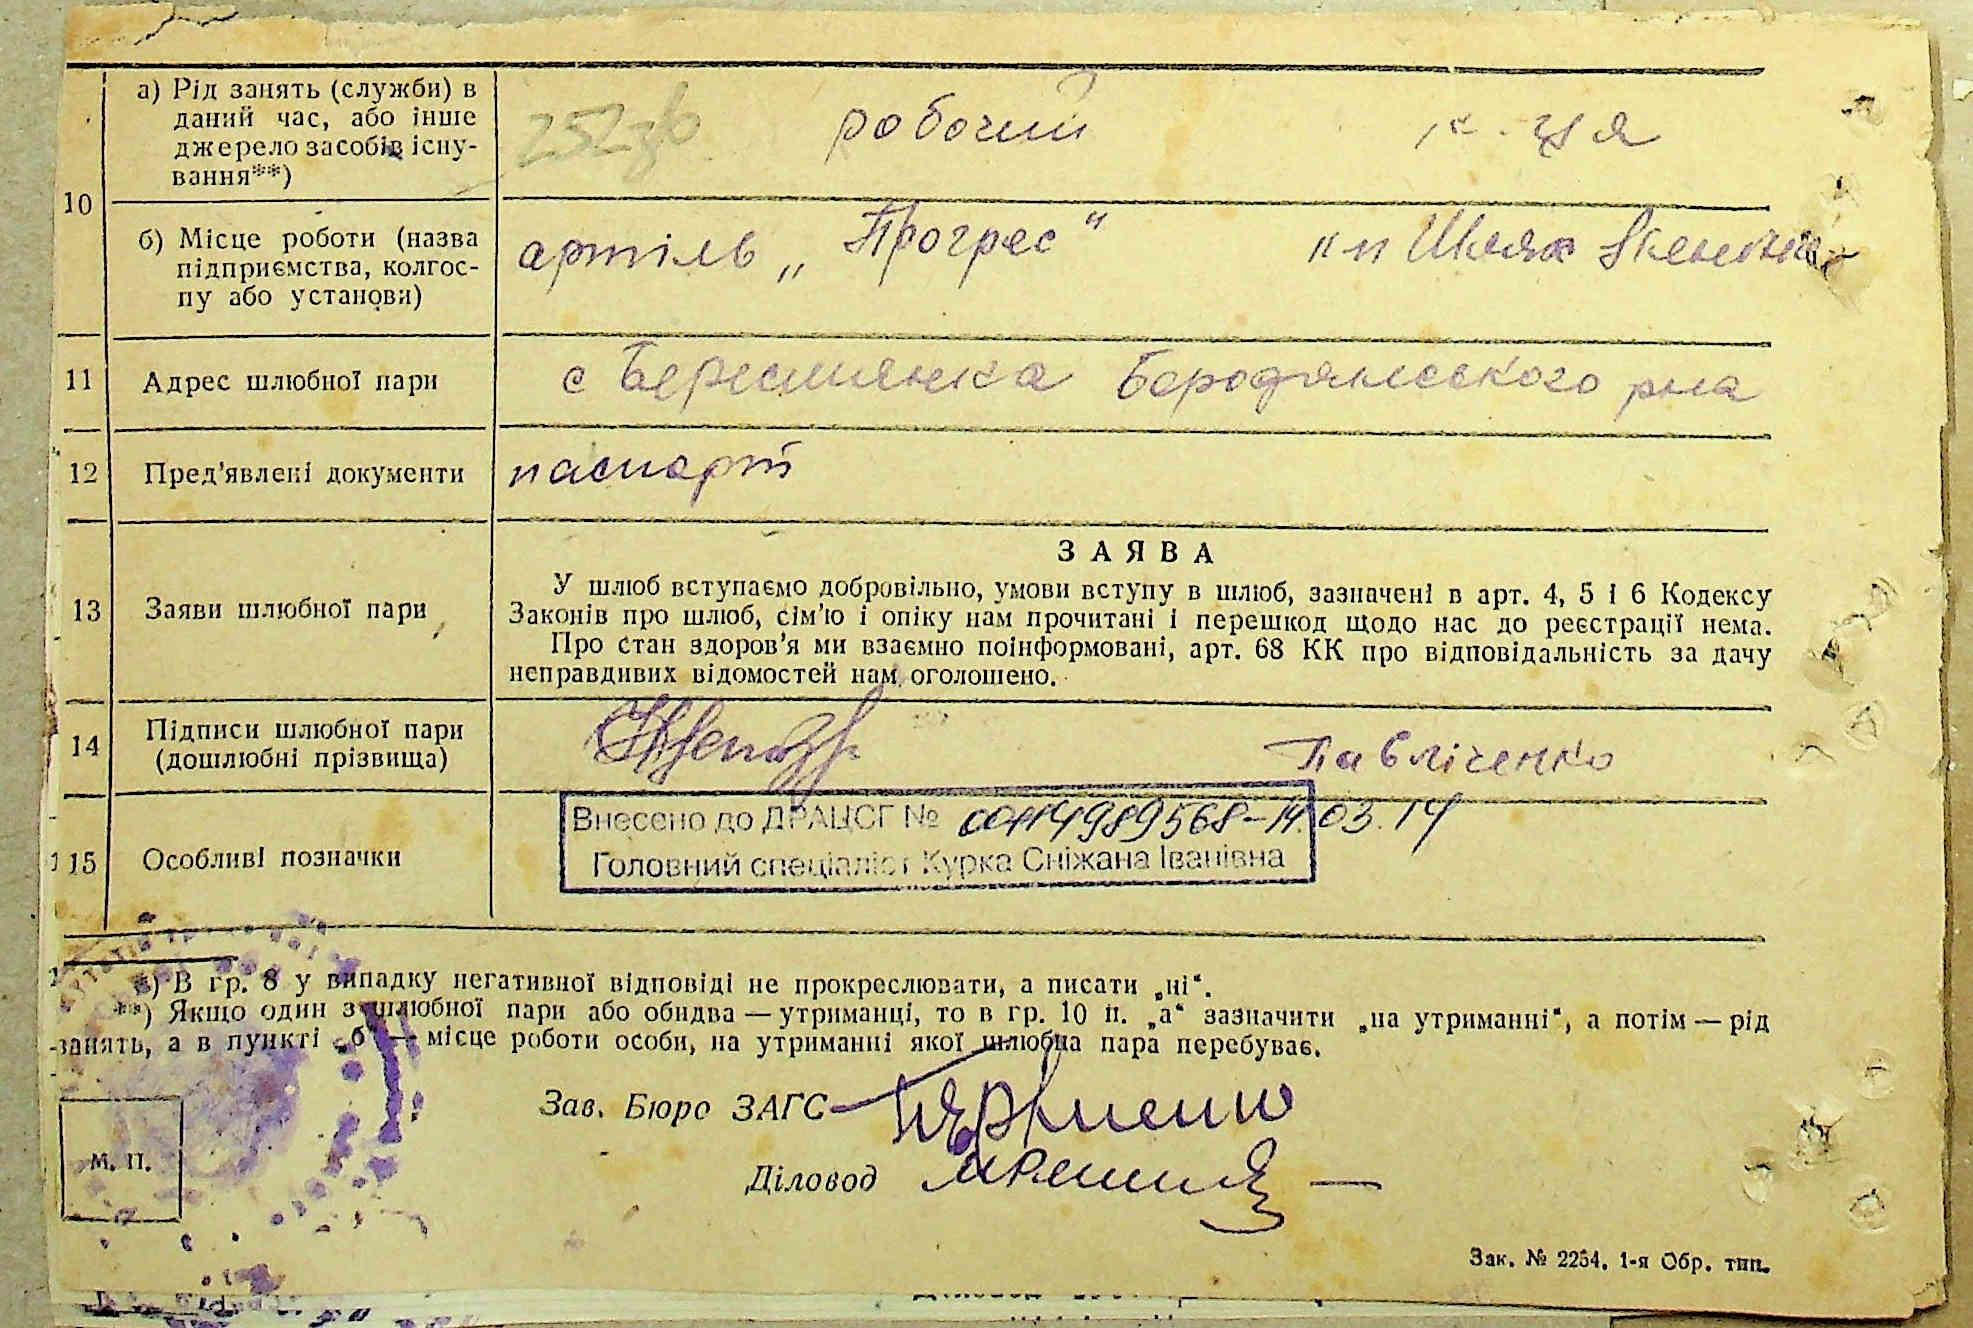 а) Рід занять (служби) в
даний час, або інше
джерело засобів існу-
вання**)
робочий
10
б) Місце роботи (назва
підприємства, колгос-
пу або установи)
артіль „Прогрес"
Шлях
11
Адрес шлюбної пари
с Берестянка Бородянського р-на
12
Пред'явлені документи
паспорт
13
Заяви шлюбної пари
ЗАЯВА
У шлюб вступаємо добровільно, умови вступу в шлюб, зазначені в арт. 4, 5 і 6 Кодексу
Законів про шлюб, сім'ю і опіку нам прочитані і перешкод щодо нас до реєстрації нема.
Про стан здоров'я ми взаємно поінформовані, арт. 68 КК про відповідальність за дачу
неправдивих відомостей нам оголошено.
14
Підписи шлюбної пари
(дошлюбні прізвища)
Павліченко
15
Особливі позначки
Внесено до ДРАЦСГ № 00114989568-14.03.14
Головний спеціаліст Курка Сніжана Іванівна
*) В гр. 8 у випадку негативної відповіді не прокреслювати, а писати „ні".
**) Якщо один з шлюбної пари або обидва — утриманці, то в гр. 10 п. „а" зазначити „на утриманні", а потім — рід
занять, а в пункті „б" — місце роботи особи, на утриманні якої шлюбна пара перебуває.
Зав. Бюро ЗАГС
Діловод
М. П.
Зак. № 2264. 1-я Обр. тип.